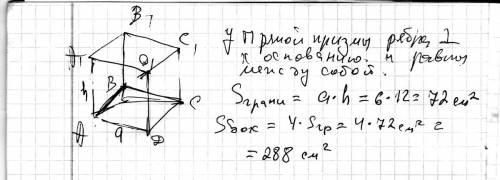 B₁
C₁
A₁
D₁
h
B
C
A
a
D
У прямой призмы рёбра ⊥
к основанию и равны
между собой.
Sграни = a·h = 6·12 = 72 см²
Sбок = 4·Sгр = 4·72 см² =
= 288 см²